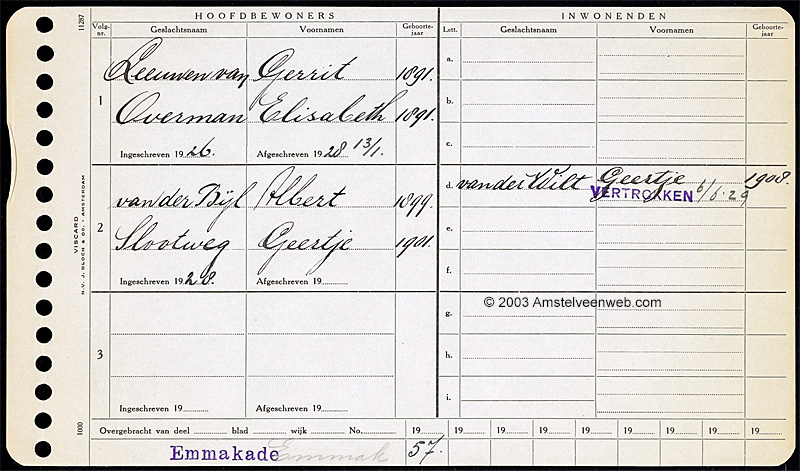 HOOFDBEWONERS
INWONENDEN
Volg-nr.
Geslachtsnaam
Voornamen
Geboorte-jaar
Lett.
Geslachtsnaam
Voornamen
Geboorte-jaar
11287
VISCARD
N.V. J. BLOCH & Co. - AMSTERDAM
1000
1
Leeuwen van Gerrit 1891.
Overman Elisabeth 1891.
Ingeschreven 1926. Afgeschreven 1928 13/1.
2
van der Bijl Albert 1899.
Slootweg Geertje 1901.
Ingeschreven 1928. Afgeschreven 19
3
Ingeschreven 19 Afgeschreven 19
a.
b.
c.
d. van der Wilt Geertje 1908.
VERTROKKEN 6/6-29
e.
f.
© 2003 Amstelveenweb.com
g.
h.
i.
Overgebracht van deel blad wijk No. 19 19 19 19 19 19 19 19 19
Emmakade Emmak 57.